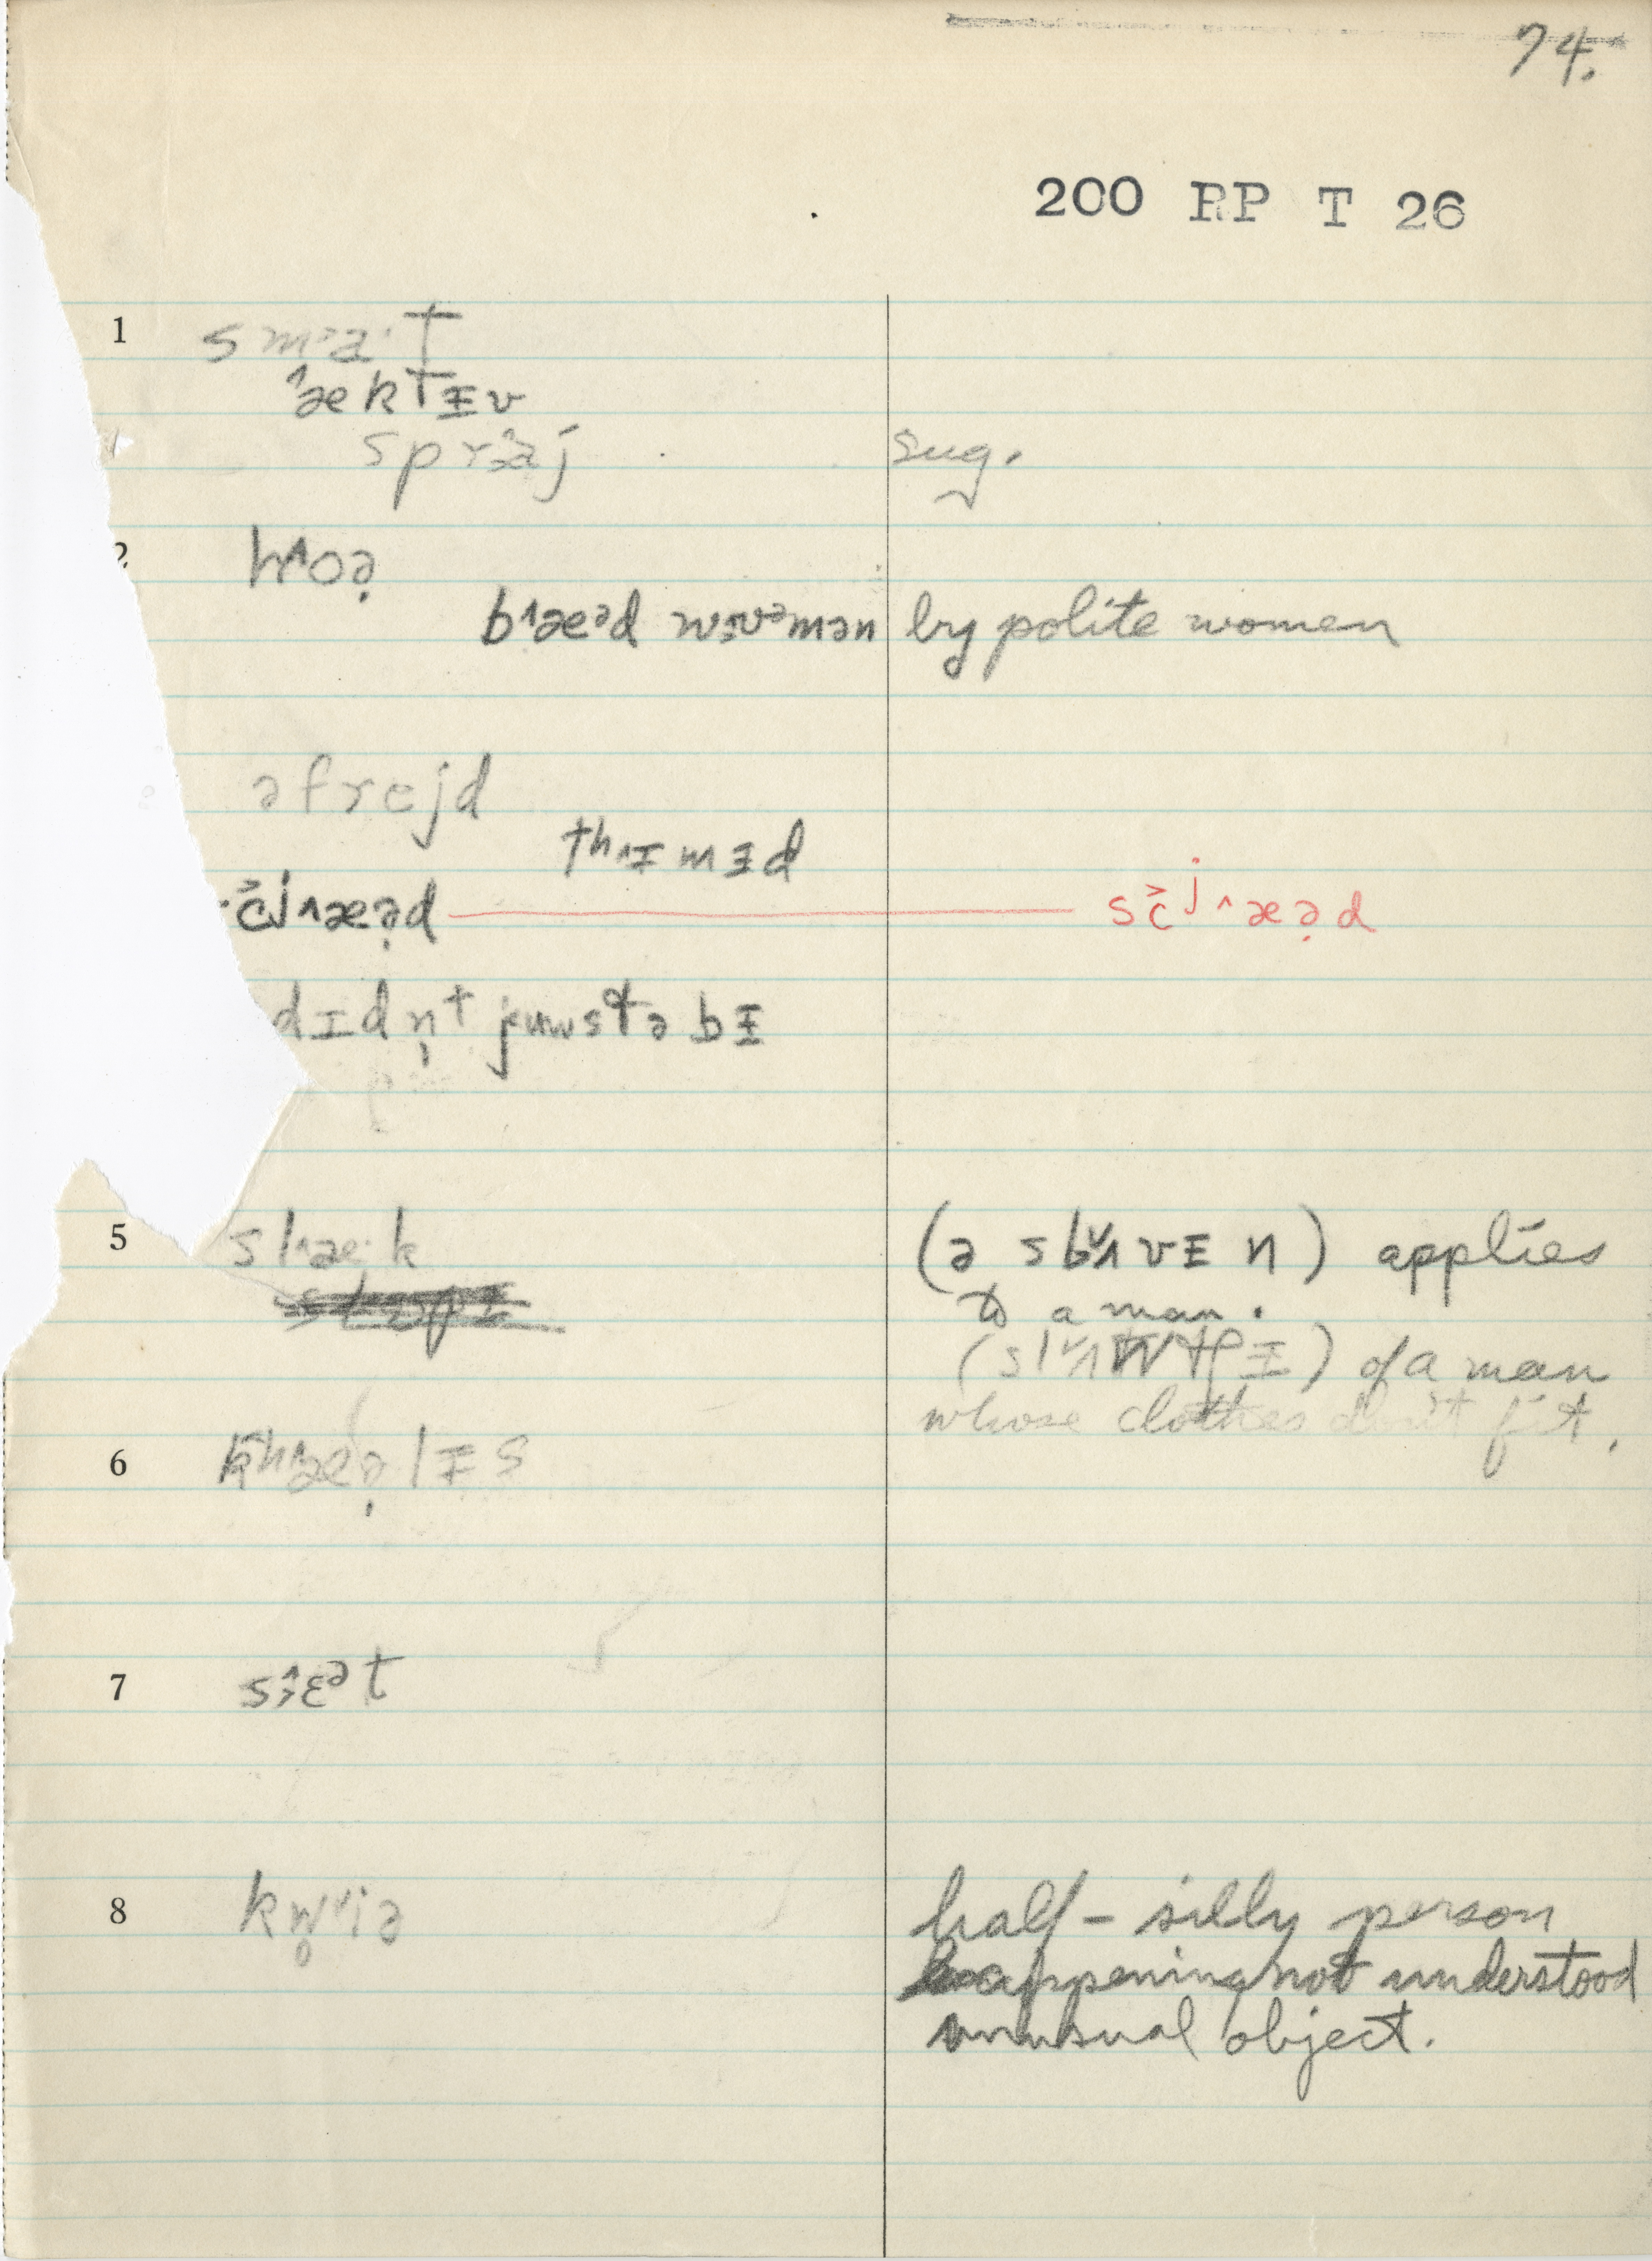 74.
200 RP T 26
1 smˑa·T
˄ækTɪv
sprɜ˄aj sug.
2 h˄oə̣
b˄æᵊd wʊᵊmən by polite women
əfrejd
th˄ɪmɪd
č̌j˄æə̣d sč̌ʲ˄æə̣d
dɪdn̩t juwstə bɪ
5 sl˄æ·k (ə sl˅ʌvɪn) applies
to a man.
(sl˅ʌpɪ) of a man
whose clothes don't fit.
6 kh˄æə̣lɪs
7 s˄ɛᵊt
8 kw̥˅iə half-silly person
happening not understood
unusual object.